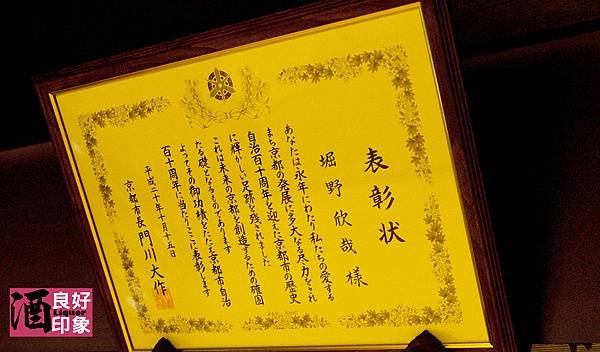 表彰状
堀野欣哉様
あなたは永年にわたり私たちの愛する
まち京都の発展に多大なる尽力をされ
自治百十周年を迎えた京都市の歴史
に輝かしい足跡を残されました
これは未来の京都を創造するための確固
たる礎となるものであります
よってその御功績をたたえ京都市自治
百十周年に当たりここに表彰します
平成二十年十月十五日
京都市長 門川大作
酒
良好
Liquor
印象